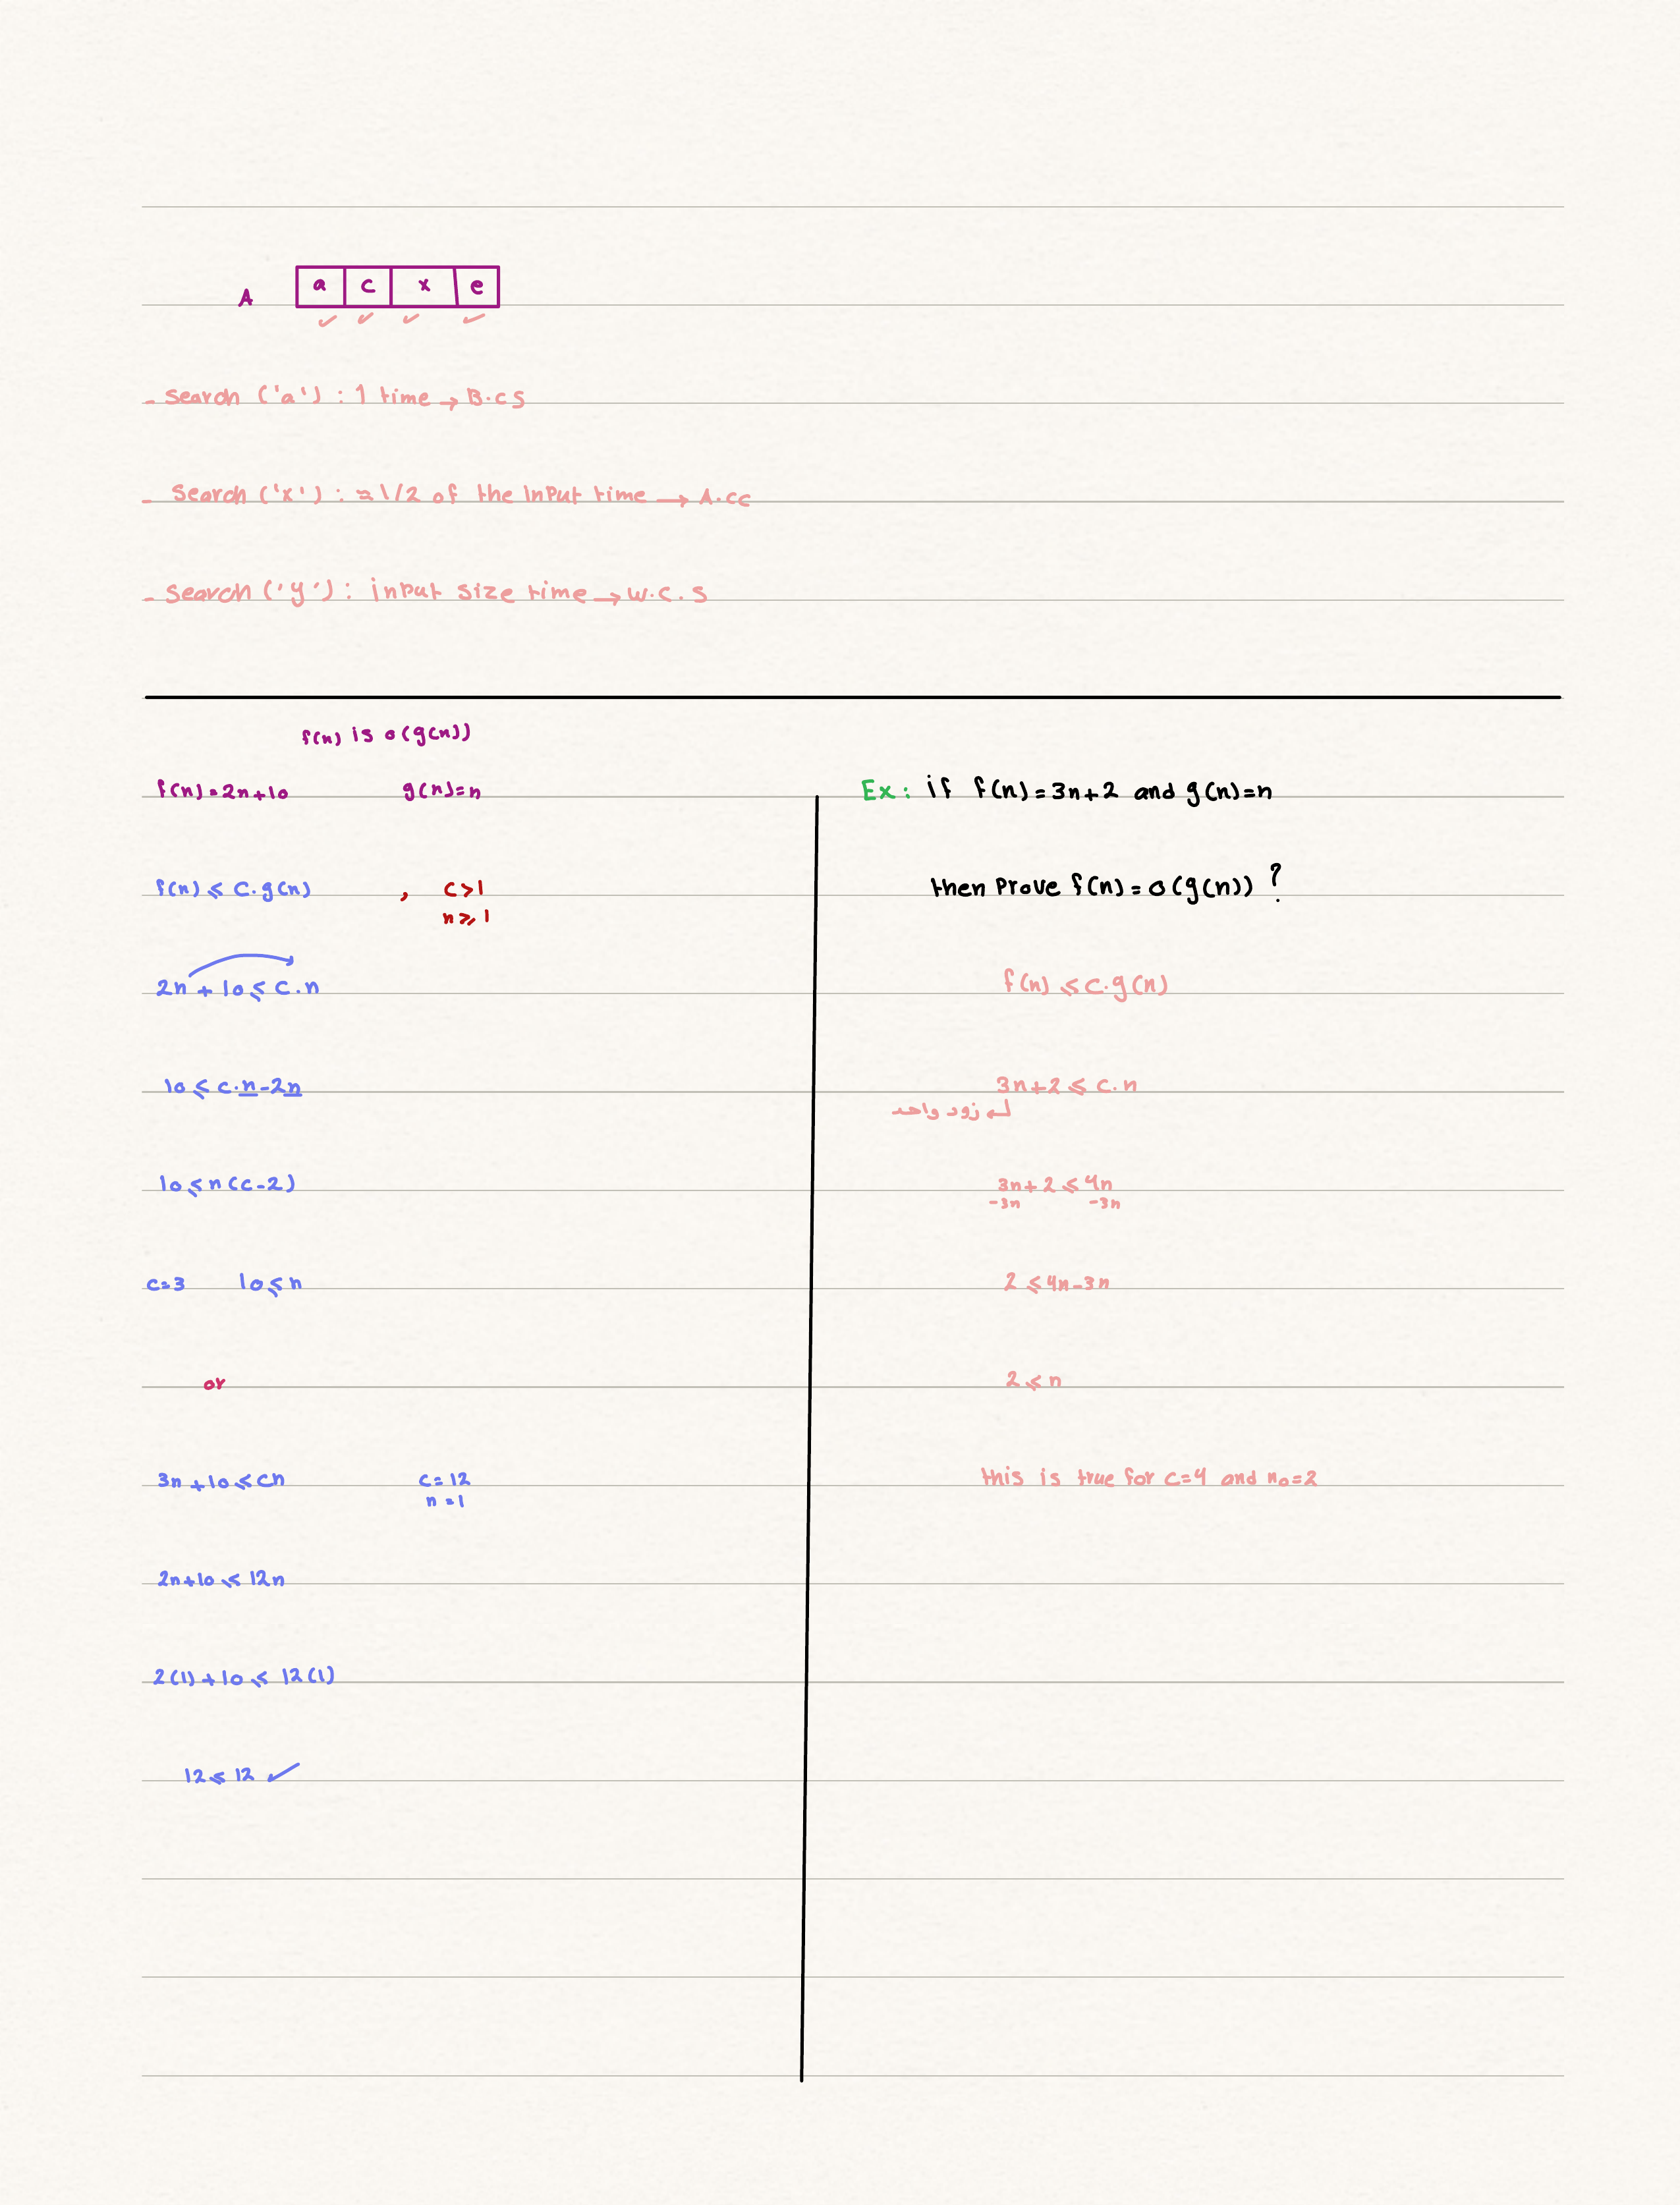 A a c x e
- Search ('a') : 1 time → B.cs
- Search ('x') : ≈ 1/2 of the input time → A.cc
- Search ('y') : input size time → w.c.s
f(n) is o(g(n))
f(n) = 2n+10 g(n)=n
f(n) ≤ c.g(n) , c>1
n≥1
2n + 10 ≤ c.n
10 ≤ c.n-2n
10 ≤ n(c-2)
c=3 10 ≤ n
or
3n+10 ≤ cn c=12
n=1
2n+10 ≤ 12n
2(1)+10 ≤ 12(1)
12 ≤ 12 ✓
Ex: if f(n)=3n+2 and g(n)=n
then prove f(n)=o(g(n)) ?
f(n) ≤ c.g(n)
3n+2 ≤ c.n
زود واحد
3n+2 ≤ 4n
-3n -3n
2 ≤ 4n-3n
2 ≤ n
this is true for c=4 and n₀=2